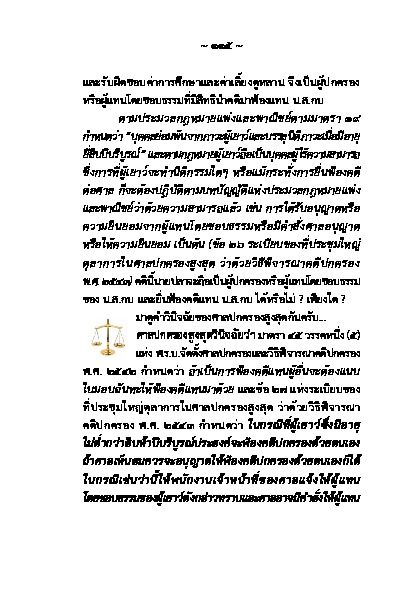 ~ ๑๑๕ ~
และรับผิดชอบค่าการศึกษาและค่าเลี้ยงดูหลาน จึงเป็นผู้ปกครอง
หรือผู้แทนโดยชอบธรรมที่มีสิทธินำคดีมาฟ้องแทน น.ส.กบ
ตามประมวลกฎหมายแพ่งและพาณิชย์ตามมาตรา ๑๙
กำหนดว่า “บุคคลย่อมพ้นจากภาวะผู้เยาว์และบรรลุนิติภาวะเมื่อมีอายุ
ยี่สิบปีบริบูรณ์” และตามกฎหมายผู้เยาว์ถือเป็นบุคคลผู้ไร้ความสามารถ
ซึ่งการที่ผู้เยาว์จะทำนิติกรรมใดๆ หรือแม้กระทั่งการยื่นฟ้องคดี
ต่อศาล ก็จะต้องปฏิบัติตามบทบัญญัติแห่งประมวลกฎหมายแพ่ง
และพาณิชย์ว่าด้วยความสามารถแล้ว เช่น การได้รับอนุญาตหรือ
ความยินยอมจากผู้แทนโดยชอบธรรมหรือมีคำสั่งศาลอนุญาต
หรือให้ความยินยอม เป็นต้น (ข้อ ๒๖ ระเบียบของที่ประชุมใหญ่
ตุลาการในศาลปกครองสูงสุด ว่าด้วยวิธีพิจารณาคดีปกครอง
พ.ศ. ๒๕๔๓) คดีนี้นายปลาจะถือเป็นผู้ปกครองหรือผู้แทนโดยชอบธรรม
ของ น.ส.กบ และยื่นฟ้องคดีแทน น.ส.กบ ได้หรือไม่ ? เพียงใด ?
มาดูคำวินิจฉัยของศาลปกครองสูงสุดกันครับ...
ศาลปกครองสูงสุดวินิจฉัยว่า มาตรา ๔๕ วรรคหนึ่ง (๕)
แห่ง พ.ร.บ.จัดตั้งศาลปกครองและวิธีพิจารณาคดีปกครอง
พ.ศ. ๒๕๔๒ กำหนดว่า ถ้าเป็นการฟ้องคดีแทนผู้อื่นจะต้องแนบ
ใบมอบฉันทะให้ฟ้องคดีแทนมาด้วย และข้อ ๒๗ แห่งระเบียบของ
ที่ประชุมใหญ่ตุลาการในศาลปกครองสูงสุด ว่าด้วยวิธีพิจารณา
คดีปกครอง พ.ศ. ๒๕๔๓ กำหนดว่า ในกรณีที่ผู้เยาว์ซึ่งมีอายุ
ไม่ต่ำกว่าสิบห้าปีบริบูรณ์ประสงค์จะฟ้องคดีปกครองด้วยตนเอง
ถ้าศาลเห็นสมควรจะอนุญาตให้ฟ้องคดีปกครองด้วยตนเองก็ได้
ในกรณีเช่นว่านี้ให้พนักงานเจ้าหน้าที่ของศาลแจ้งให้ผู้แทน
โดยชอบธรรมของผู้เยาว์ดังกล่าวทราบและศาลอาจมีคำสั่งให้ผู้แทน